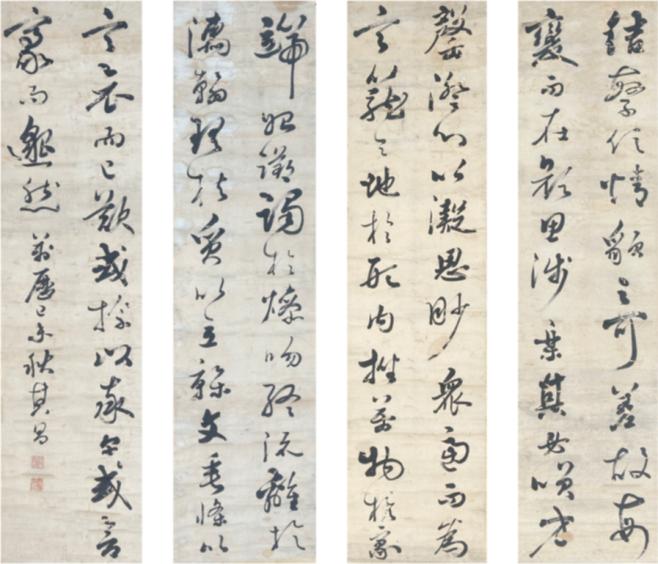 結繁信情貌之不差故每
變而在顏思涉樂其必笑方
罄澄心以凝思眇眾慮而為
言籠天地於形內挫萬物於豪
端始躑躅於燥吻終流離於
濡翰理扶質以立榦文垂條以
言哀而已歎或操觚以率爾或含
豪而邈然 萬曆己未秋其昌